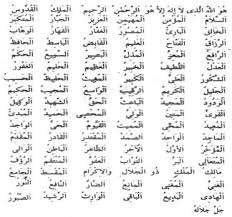 هُوَ اللهُ الَّذِى لاَ إِلَهَ إِلاَّ هُوَ الرَّحْمَنُ الرَّحِيمُ الْمَلِكُ الْقُدُّوسُ
السَّلاَمُ الْمُؤْمِنُ الْمُهَيْمِنُ الْعَزِيزُ الْجَبَّارُ الْمُتَكَبِّرُ
الْخَالِقُ الْبَارِئُ الْمُصَوِّرُ الْغَفَّارُ الْقَهَّارُ الْوَهَّابُ
الرَّزَّاقُ الْفَتَّاحُ الْعَلِيمُ الْقَابِضُ الْبَاسِطُ
الرَّافِعُ الْمُعِزُّ الْمُذِلُّ السَّمِيعُ الْبَصِيرُ الْحَكَمُ
الْعَدْلُ اللَّطِيفُ الْخَبِيرُ الْحَلِيمُ الْعَظِيمُ الْغَفُورُ
الشَّكُورُ الْعَلِيُّ الْكَبِيرُ الْحَفِيظُ الْمُقِيتُ الْحَسِيبُ
الْجَلِيلُ الْكَرِيمُ الرَّقِيبُ الْمُجِيبُ الْوَاسِعُ الْحَكِيمُ
الْوَدُودُ الْمَجِيدُ الْبَاعِثُ
الْقَوِيُّ الْمَتِينُ الْوَلِيُّ الْحَمِيدُ الْمُحْصِي الْمُبْدِئُ
الْمُعِيدُ الْمُحْيِي الْمُمِيتُ الْحَيُّ الْقَيُّومُ الْوَاجِدُ
الْمَاجِدُ الْوَاحِدُ الصَّمَدُ الْقَادِرُ الْمُقْتَدِرُ الْمُقَدِّمُ
الْمُؤَخِّرُ الأَوَّلُ الآخِرُ الظَّاهِرُ الْبَاطِنُ الْوَالِي
الْمُتَعَالِي الْبَرُّ التَّوَّابُ الرَّؤُفُ
مَالِكُ الْمُلْكِ ذُو الْجَلاَلِ وَالإِكْرَامِ الْمُقْسِطُ الْجَامِعُ
الْغَنِيُّ الْمُغْنِي الْمَانِعُ الضَّارُّ النَّافِعُ النُّورُ
الْهَادِي الْبَدِيعُ الْبَاقِي الْوَارِثُ الرَّشِيدُ الصَّبُورُ
جَلَّ جَلاَلُهُ